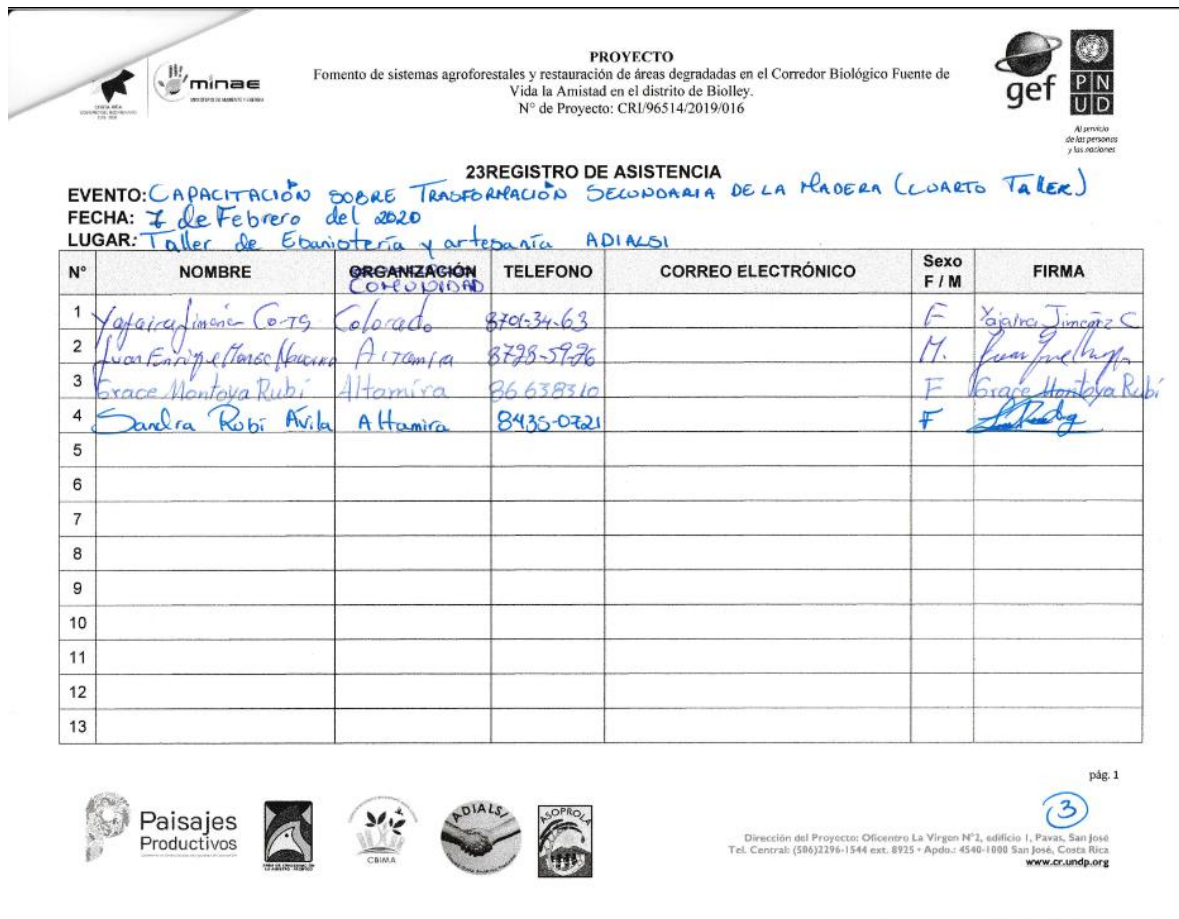 minae
PROYECTO
Fomento de sistemas agroforestales y restauración de áreas degradadas en el Corredor Biológico Fuente de
Vida la Amistad en el distrito de Biolley.
N° de Proyecto: CRI/96514/2019/016
gef
P N
U D
Al servicio
de las personas
y las naciones
23REGISTRO DE ASISTENCIA
EVENTO: CAPACITACIÓN SOBRE TRASFORMACIÓN SECUNDARIA DE LA MADERA (CUARTO TALLER)
FECHA: 7 de Febrero del 2020
LUGAR: Taller de Ebanistería y artesanía ADIALSI
N° NOMBRE ORGANIZACIÓN TELEFONO CORREO ELECTRÓNICO Sexo F / M FIRMA
COMUNIDAD
1 Yajaira Jiménez Colorado 8701-34-63 F Yajaira Jiménez C
2 Juan Enrique Altamira 8728-5926 M.
3 Grace Montoya Rubí Altamira 86638310 F Grace Montoya Rubí
4 Sandra Rubí Ávila Altamira 8435-0721 F
5
6
7
8
9
10
11
12
13
pág. 1
3
Paisajes
Productivos
CBIMA
ADIALSI
ASOPROLA
Dirección del Proyecto: Oficentro La Virgen N°2, edificio 1, Pavas, San José
Tel. Central: (506)2296-1544 ext. 8925 • Apdo.: 4540-1000 San José, Costa Rica
www.cr.undp.org